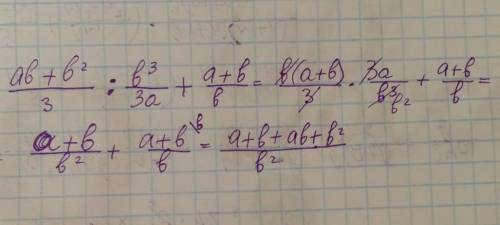 (ab + b²)/3 : b³/3a + (a+b)/b = b(a+b)/3 · 3a/b³ b² + (a+b)/b =
(a+b)/b² + (a+b)/b \b = (a+b+ab+b²)/b²